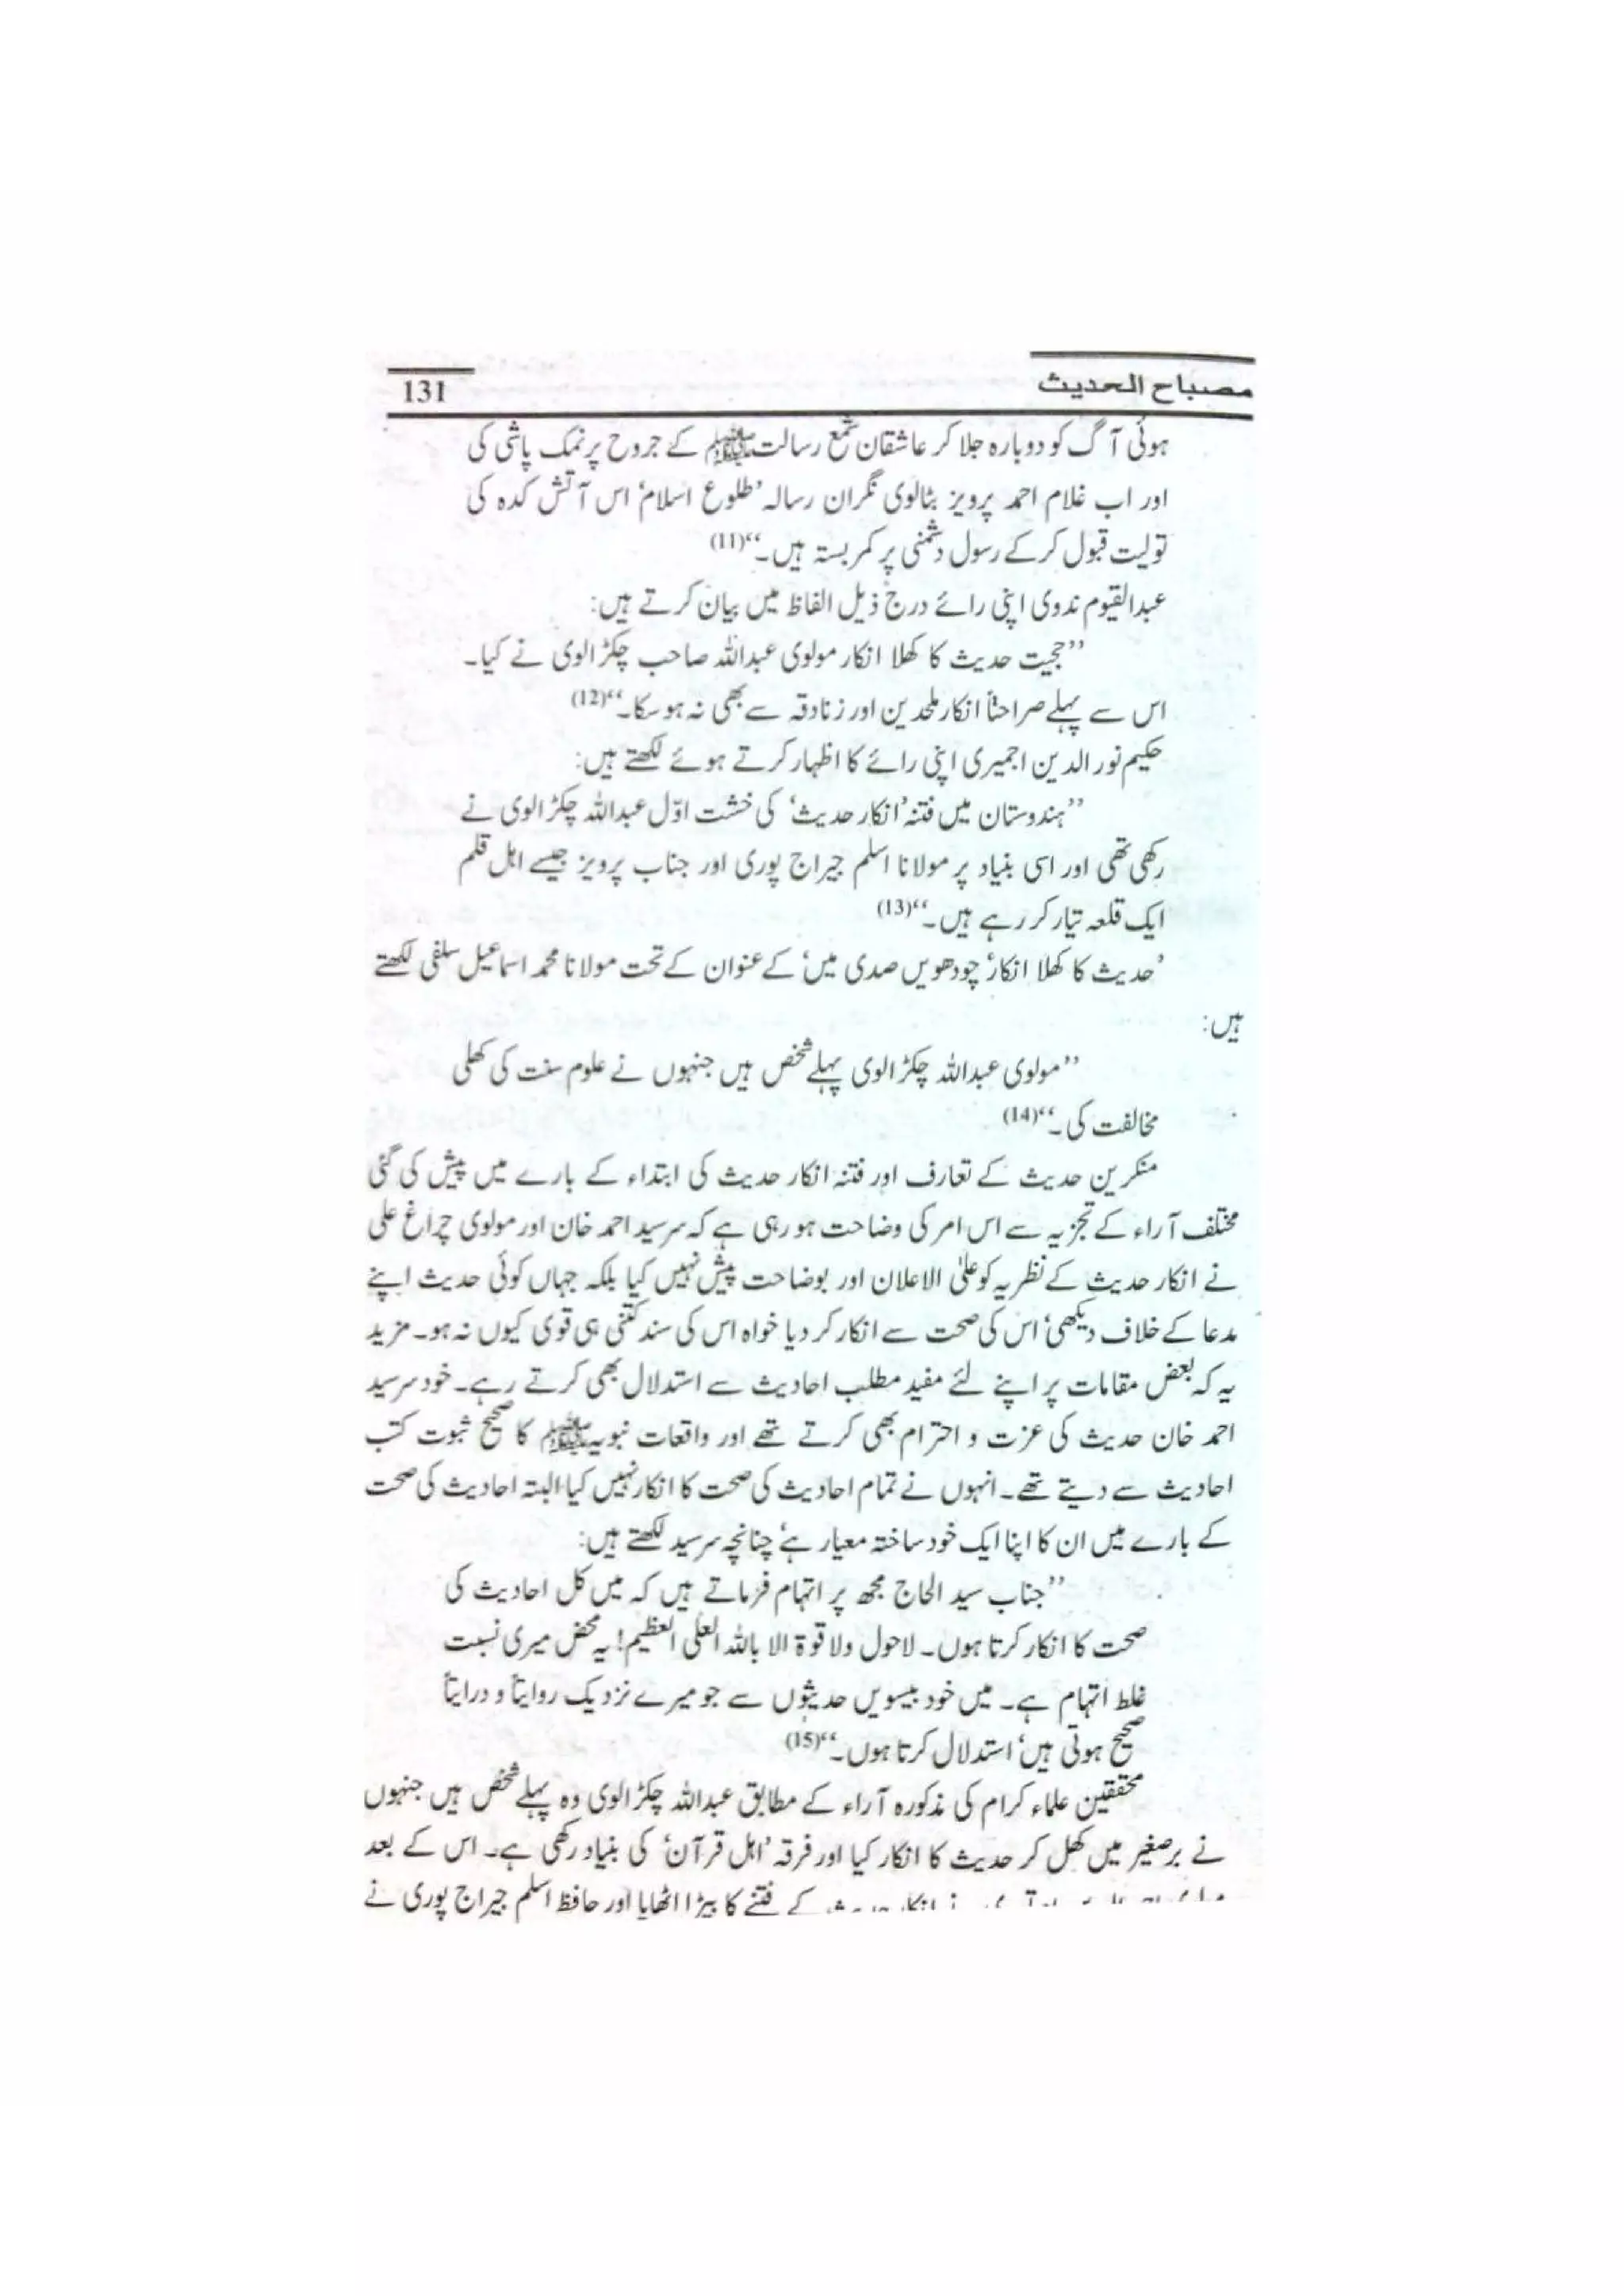 مصباح الحدیث
131
ہوئی آگ کو دوبارہ جلا کر عاشقان شمع رسالت ﷺ کے جروح پر نمک پاشی کی
اور اب غلام احمد پرویز بٹالوی نگران رسالہ ’طلوع اسلام‘ اس آتش کدہ کی
تولیت قبول کر کے رسول دشمنی پر کمر بستہ ہیں۔‘‘(11)
عبدالقیوم ندوی اپنی رائے درج ذیل الفاظ میں بیان کرتے ہیں:
’’حجیت حدیث کا کھلا انکار مولوی عبداللہ صاحب چکڑالوی نے کیا۔
اس سے پہلے صراحتاً انکار ملحدین اور زنادقہ سے بھی نہ ہو سکا۔‘‘(12)
حکیم نور الدین اجمیری اپنی رائے کا اظہار کرتے ہوئے لکھتے ہیں:
’’ہندوستان میں فتنہ ’انکار حدیث‘ کی خشت اوّل عبداللہ چکڑالوی نے
رکھی تھی اور اسی بنیاد پر مولانا اسلم جیراج پوری اور جناب پرویز جیسے اہل قلم
ایک قلعہ تیار کر رہے ہیں۔‘‘(13)
’حدیث کا کھلا انکار‘ چودھویں صدی میں‘ کے عنوان کے تحت مولانا محمد اسماعیل سلفی لکھتے
ہیں:
’’مولوی عبداللہ چکڑالوی پہلے شخص ہیں جنہوں نے علوم سنت کی کھلی
مخالفت کی۔‘‘(14)
منکرین حدیث کے تعارف اور فتنہ انکار حدیث کی ابتداء کے بارے میں پیش کی گئی
مختلف آراء کے تجزیہ سے اس امر کی وضاحت ہو رہی ہے کہ سرسید احمد خان اور مولوی چراغ علی
نے انکار حدیث کے نظریہ کو علیٰ الاعلان اور بوضاحت پیش نہیں کیا بلکہ جہاں کوئی حدیث اپنے
مدعا کے خلاف دیکھی‘ اس کی صحت سے انکار کر دیا خواہ اس کی سند کتنی ہی قوی کیوں نہ ہو۔ مزید
یہ کہ بعض مقامات پر اپنے لئے مفید مطلب احادیث سے استدلال بھی کرتے رہے۔ خود سرسید
احمد خان حدیث کی عزت و احترام بھی کرتے تھے اور واقعات نبویہ ﷺ کا صحیح ثبوت کتب
احادیث سے دیتے تھے۔ انہوں نے تمام احادیث کی صحت کا انکار نہیں کیا البتہ احادیث کی صحت
کے بارے میں ان کا اپنا ایک خود ساختہ معیار ہے‘ چنانچہ سرسید لکھتے ہیں:
’’جناب سید الحاج مجھ پر اتہام فرماتے ہیں کہ میں کل احادیث کی
صحت کا انکار کرتا ہوں۔ لاحول ولا قوۃ الا باللہ العلی العظیم! یہ محض میری نسبت
غلط اتہام ہے۔ میں خود بیسویں حدیثوں سے جو میرے نزدیک روایتاً و درایتاً
صحیح ہوتی ہیں‘ استدلال کرتا ہوں۔‘‘(15)
محققین علماء کرام کی مذکورہ آراء کے مطابق عبداللہ چکڑالوی وہ پہلے شخص ہیں جنہوں
نے برصغیر میں کھل کر حدیث کا انکار کیا اور فرقہ ’اہل قرآن‘ کی بنیاد رکھی ہے۔ اس کے بعد
نے انکار حدیث کے فتنے کا بیڑا اٹھایا اور حافظ اسلم جیراج پوری نے